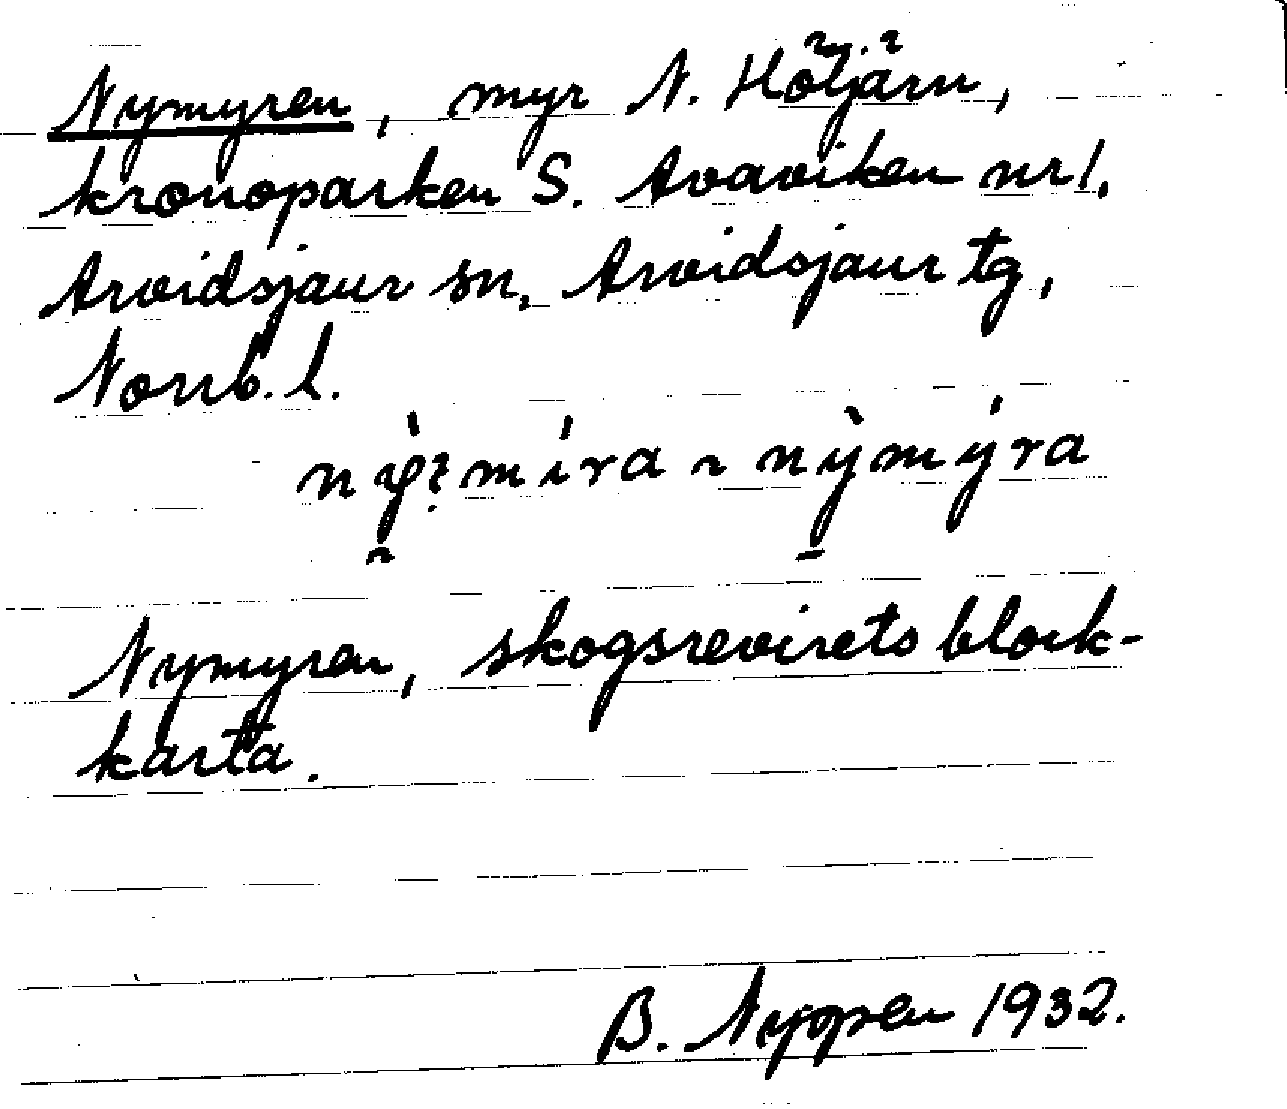 Nymyren, myr N. Höljärn,
kronoparken S. Avaviken nr 1.
Arvidsjaur sn, Arvidsjaur tg,
Norrb. l.
nỳmýra
Nymyren, skogsrevirets block-
karta.
B. Nyppen 1932.